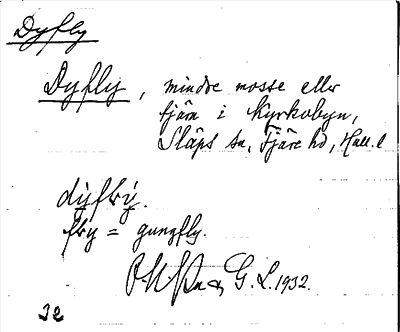 Dyfly
Dyfly, mindre mosse eller
tjära i Kyrkobyn,
Släps sn, Fjäre hd, Hall. l
dýfły̓.
fły = gungfly.
G. L. 1932.
32